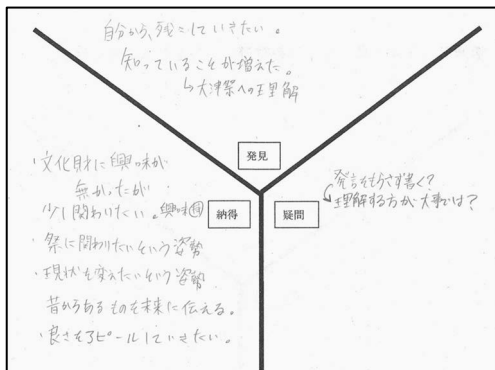 自分から、残していきたい。
知っていることが増えた。
↳大津祭への理解
発見
・文化財に興味が
無かったが
少し関わりたい。興味
・祭に関わりたいという姿勢
・現状を変えたいという姿勢
昔からあるものを未来に伝える。
・良さをアピールしていきたい。
納得
疑問
発言をもらさず書く?
理解する方が大事では?